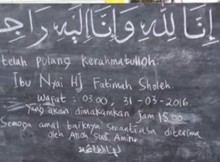 إنا لله وإنا إليه راجـ
telah pulang kerahmatulloh
Ibu Nyai Hj Fatimah Sholeh
Wafat : 03.00, 31-03-2016
Yang akan dimakamkan jam 15.00
Semoga amal baiknya senantiasa diterima
oleh Allah SWT. Amin